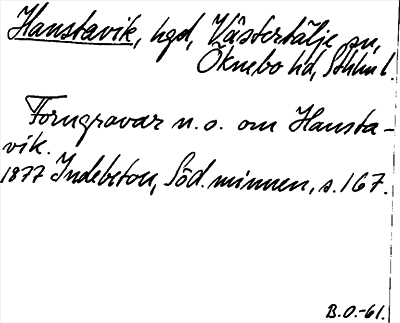 Hanstavik, hgd, Västertälje sn,
Öknebo hd, Sthlm l.
Forngravar n. o. om Hansta-
vik.
1877 Indebetou, Söd. minnen, s. 167.
B.O.-61.